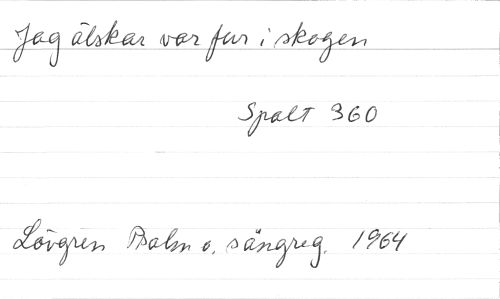 Jag älskar var fur i skogen
Spalt 360
Lövgren Psalm o. sångreg. 1964